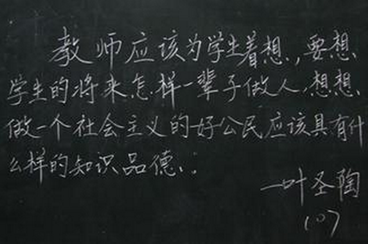 教师应该为学生着想，要想
学生的将来怎样一辈子做人，想想
做一个社会主义的好公民应该具有什
么样的知识品德..
—叶圣陶
(07